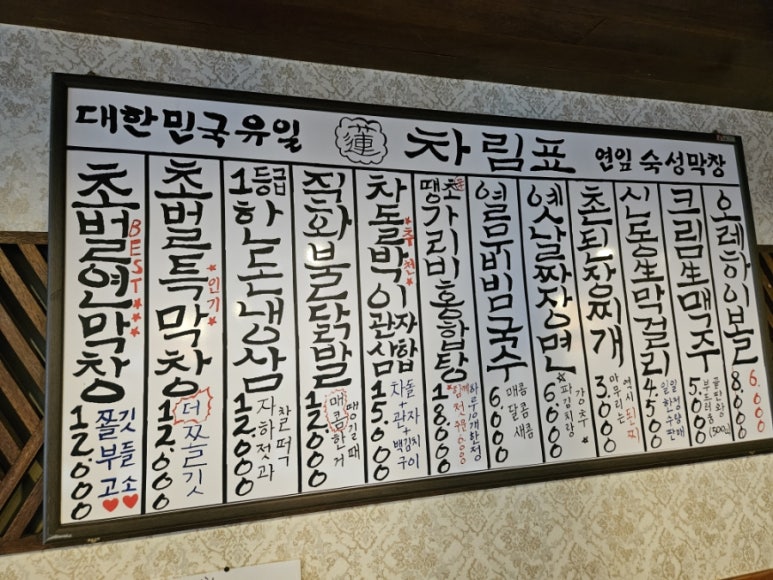 대한민국유일 蓮 차림표 연잎 숙성막창
초벌연막창
BEST★★★
쫄깃
부들
고소♥♥
12.000
초벌특막창
★인기★
더 쫄깃
12.000
1등급한돈냉삼
찰떡
자하젓과
12.000
직화불닭발
땡길때
매콤한거
12.000
차돌박이관자삼합
★추천★
차돌+관자+백김치구이
15.000
땡초가리비홍합탕
하루10개한정
18.000
열무비빔국수
매콤
달콤
새콤
6.000
옛날짜장면
★파김치랑 강추★
6.000
촌된장찌개
역시된찌
마무리는
3.000
신동生막걸리
일일한정
수량판매
4.500
크림生맥주
부드러움
(500㎖)
5.000
오레하이볼
6.000
8.000